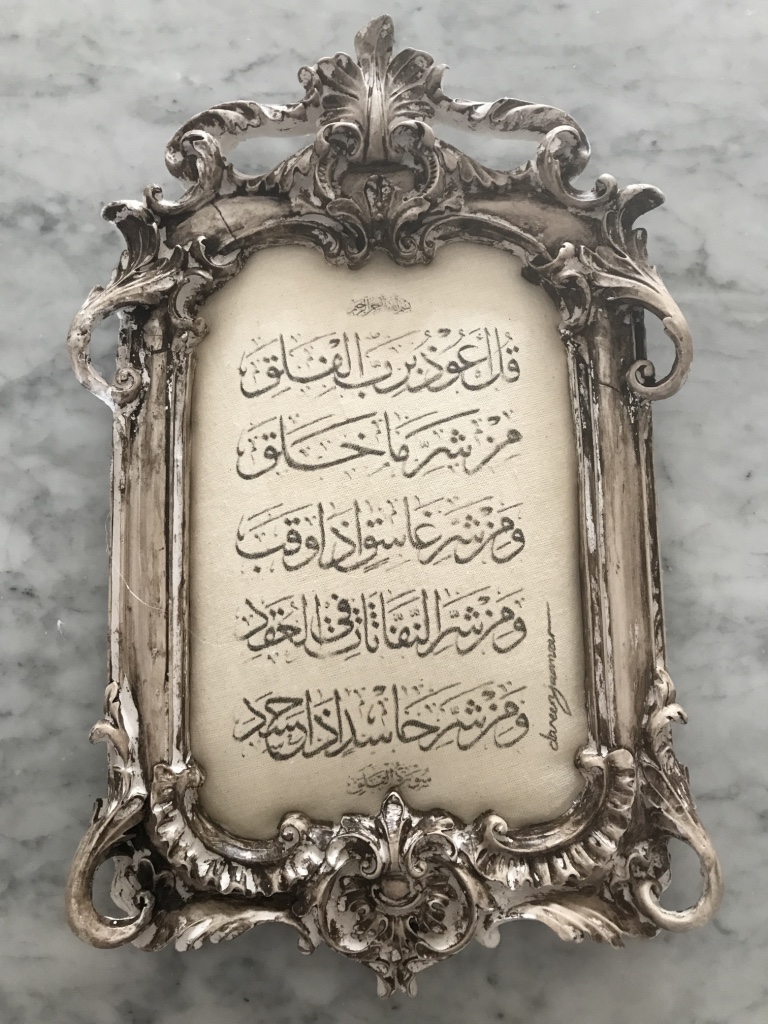 بسم الله الرحمن الرحيم
قُلْ أَعُوْذُ بِرَبِّ الفَلَقِ
مِنْ شَرِّ مَا خَلَقَ
وَمِنْ شَرِّ غَاسِقٍ اِذَا وَقَبَ
وَمِنْ شَرِّ النَّفَّاثَاتِ فِي العُقَدِ
وَمِنْ شَرِّ حَاسِدٍ اِذَا حَسَدَ
سورة الفلق